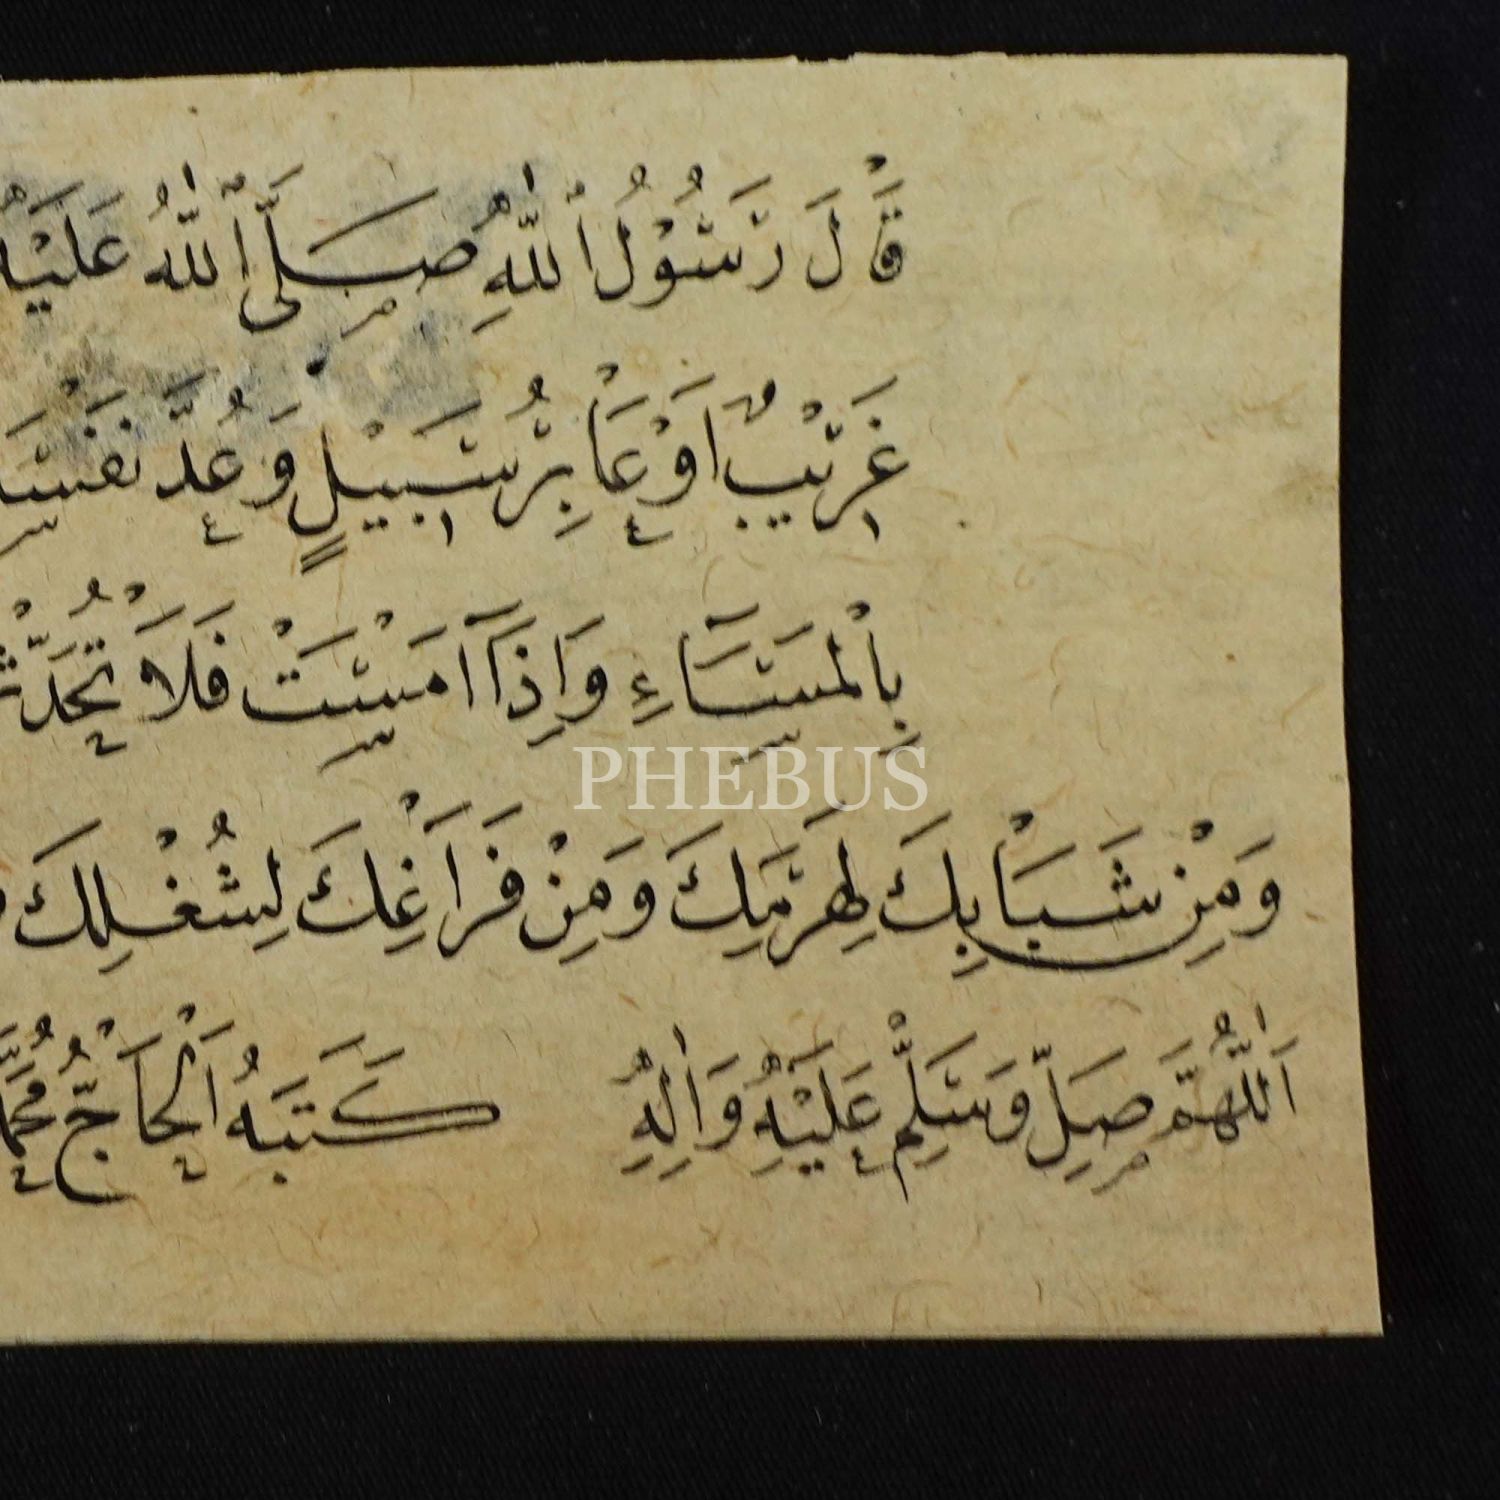 قَالَ رَسُوْلُ ٱللّٰهِ صَلَّى ٱللّٰهُ عَلَيْهِ
غَرِيْبٌ اَوْ عَابِرُ سَبِيْلٍ وَعُدَّ نَفْسَ
بِالْمَسَآءِ وَاِذَآ اَمْسَيْتَ فَلَا تُحَدِّثْ
PHEBUS
وَمِنْ شَبَابِكَ لِهَرَمِكَ وَمِنْ فَرَاغِكَ لِشُغْلِكَ
اَللّٰهُمَّ صَلِّ وَسَلِّمْ عَلَيْهِ وَاٰلِهِ كَتَبَهُ اَلْحَاجُّ مُحَمَّ